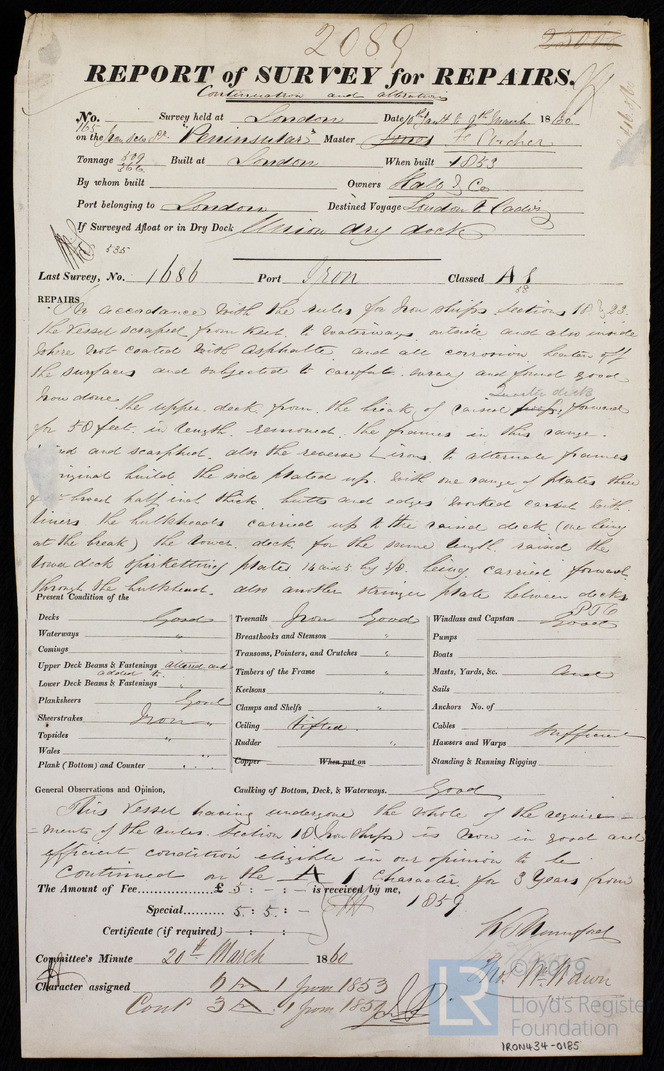 2089
25006
REPORT of SURVEY for REPAIRS.
Continuation and alteration
No. Survey held at London Date 10th Jan 4 to 9th March 1860
165 on the Iron Screw Sr. "Peninsular" Master Jones H. Archer
Tonnage 509 366 Built at London When built 1853
By whom built Owners Hall & Co
Port belonging to London Destined Voyage London to Cadiz
If Surveyed Afloat or in Dry Dock Union dry dock
535
Last Survey, No. 1686 Port Iron Classed A 1
53
REPAIRS
In accordance with the rules for Iron Ships Sections 18 & 23
the Vessel scraped from Keel to waterways outside and also inside
where not coated with asphalte and all corrosion beaten off
the surfaces and subjected to careful survey and found good
Quarter deck
Iron done the upper deck from the break of raised poop forward
for 58 feet in length removed the frames in this range
and scarphed also the reverse L irons to alternate frames
original build the side plated up with one range of plates three
broad half inch thick butts and edges worked carvel with
liners the bulkheads carried up to the raised deck (one being
at the break) the lower deck for the same length raised the
lower deck spirketting plates 14 and 5 by 3/8 being carried forward
through the bulkhead also another stringer plate between decks
PTO
Present Condition of the
Decks Good Treenails Iron Good Windlass and Capstan Good
Waterways " Breasthooks and Stemson " Pumps
Comings " Transoms, Pointers, and Crutches " Boats
Upper Deck Beams & Fastenings altered and added to Timbers of the Frame " Masts, Yards, &c. and
Lower Deck Beams & Fastenings " Keelsons " Sails
Planksheers Good Clamps and Shelfs " Anchors No. of
Sheerstrakes Iron " Ceiling lifted Cables sufficient
Topsides " Rudder " Hawsers and Warps
Wales " Copper When put on Standing & Running Rigging
Plank (Bottom) and Counter "
General Observations and Opinion, Caulking of Bottom, Deck, & Waterways. Good
This Vessel having undergone the whole of the require-
-ments of the rules Section 18 (Iron Ships) is now in good and
efficient condition eligible in our opinion to be
Continued on the A 1 Character for 3 Years from
1859
The Amount of Fee £ 5 : - : - is received by me,
Special 5 : 5 : -
Certificate (if required) : :
Committee's Minute 20th March 1860
Character assigned A 1 from 1853
Cont 3 A 1 from 1859
© 2019
LR
Lloyd's Register
Foundation
IRON434-0185